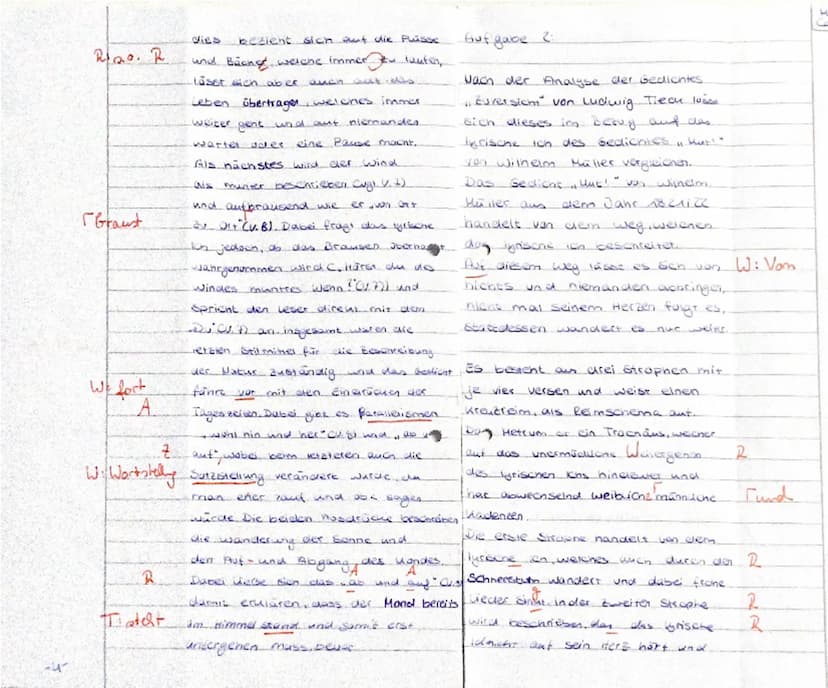 dies bezieht sich auf die Flüsse
und Bäche, welche immer zu laufen,
lässt sich aber auch auf das
Leben übertragen, welches immer
weiter geht und auf niemanden
wartet oder eine Pause macht.
Als nächstes wird der Wind
als munter beschrieben (vgl. V. 7)
und aufbrausend wie er „von Ort
zu Ort" (V. 8). Dabei fragt das lyrische
Ich jedoch, ob das Brausen überhaupt
wahrgenommen wird
Windes muntres (V. 7)) und
spricht den Leser direkt mit dem
„Du" (V. 7) an. Insgesamt waren die
letzten Stilmittel für die Beschreibung
der Natur zuständig und das Gedicht
fährt vor mit den Eindrücken der
Tageszeiten. Dabei gibt es Parallelismen
„wohl hin und her" und „ab und
auf", wobei beim letzteren auch die
Satzstellung verändert wurde, da
man eher „auf und ab" sagen
würde. Die beiden Ausdrücke beschreiben
die Wanderung der Sonne und
den Auf- und Abgang des Mondes.
Dabei ließe sich das „ab und auf" (V.
damit erklären, dass der Mond bereits
im Himmel stand und somit erst
untergehen muss, bevor
R s.o. R
Γ Braust
W: fort
A
Z
W: Wortstellg
A A
R
T: steht
-4-
Aufgabe 2:
Nach der Analyse des Gedichtes
„Zuversicht" von Ludwig Tieck lässt
sich dieses im bezug auf das
lyrische Ich des Gedichtes „Mut!"
von Wilhelm Müller vergleichen.
Das Gedicht „Mut!" von Wilhelm
Müller aus dem Jahr
handelt von dem Weg, welchen
das lyrische Ich beschreitet.
Auf diesem Weg lässt es sich von
nichts und niemanden abbringen,
nicht mal seinem Herzen folgt es,
stattdessen wandert es nur weiter.
Es besteht aus drei Strophen mit
je vier Versen und weist einen
Kreuzreim, als Reimschema auf.
Das Metrum ist ein Trochäus, welcher
auf das unermüdliche Weitergehen
des lyrischen Ichs hindeutet und
hat abwechselnd weibliche männliche
Kadenzen.
Die erste Strophe handelt von dem
lyrische ich, welches auch durch den
Schneesturm wandert und dabei frohe
Lieder singt. In der zweiten Strophe
wird beschrieben, das das lyrische
Ich nicht auf sein Herz hört und
W: Vom
R
Γ und
R
g
R
R